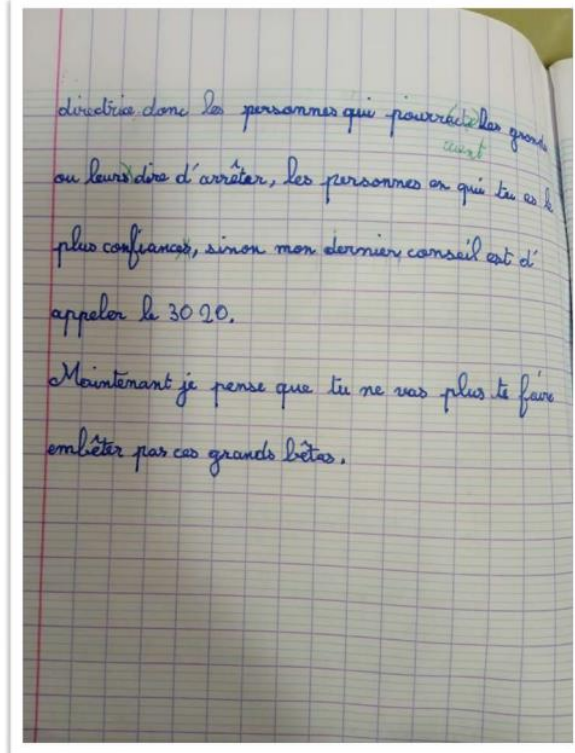 directrice donc les personnes qui pourra les grands
aient
ou leurs dire d'arrêter, les personnes en qui tu as le
plus confiances, sinon mon dernier conseil est d'
appeler le 30 20.
Maintenant je pense que tu ne vas plus te faire
embêter par ces grands bêtas.